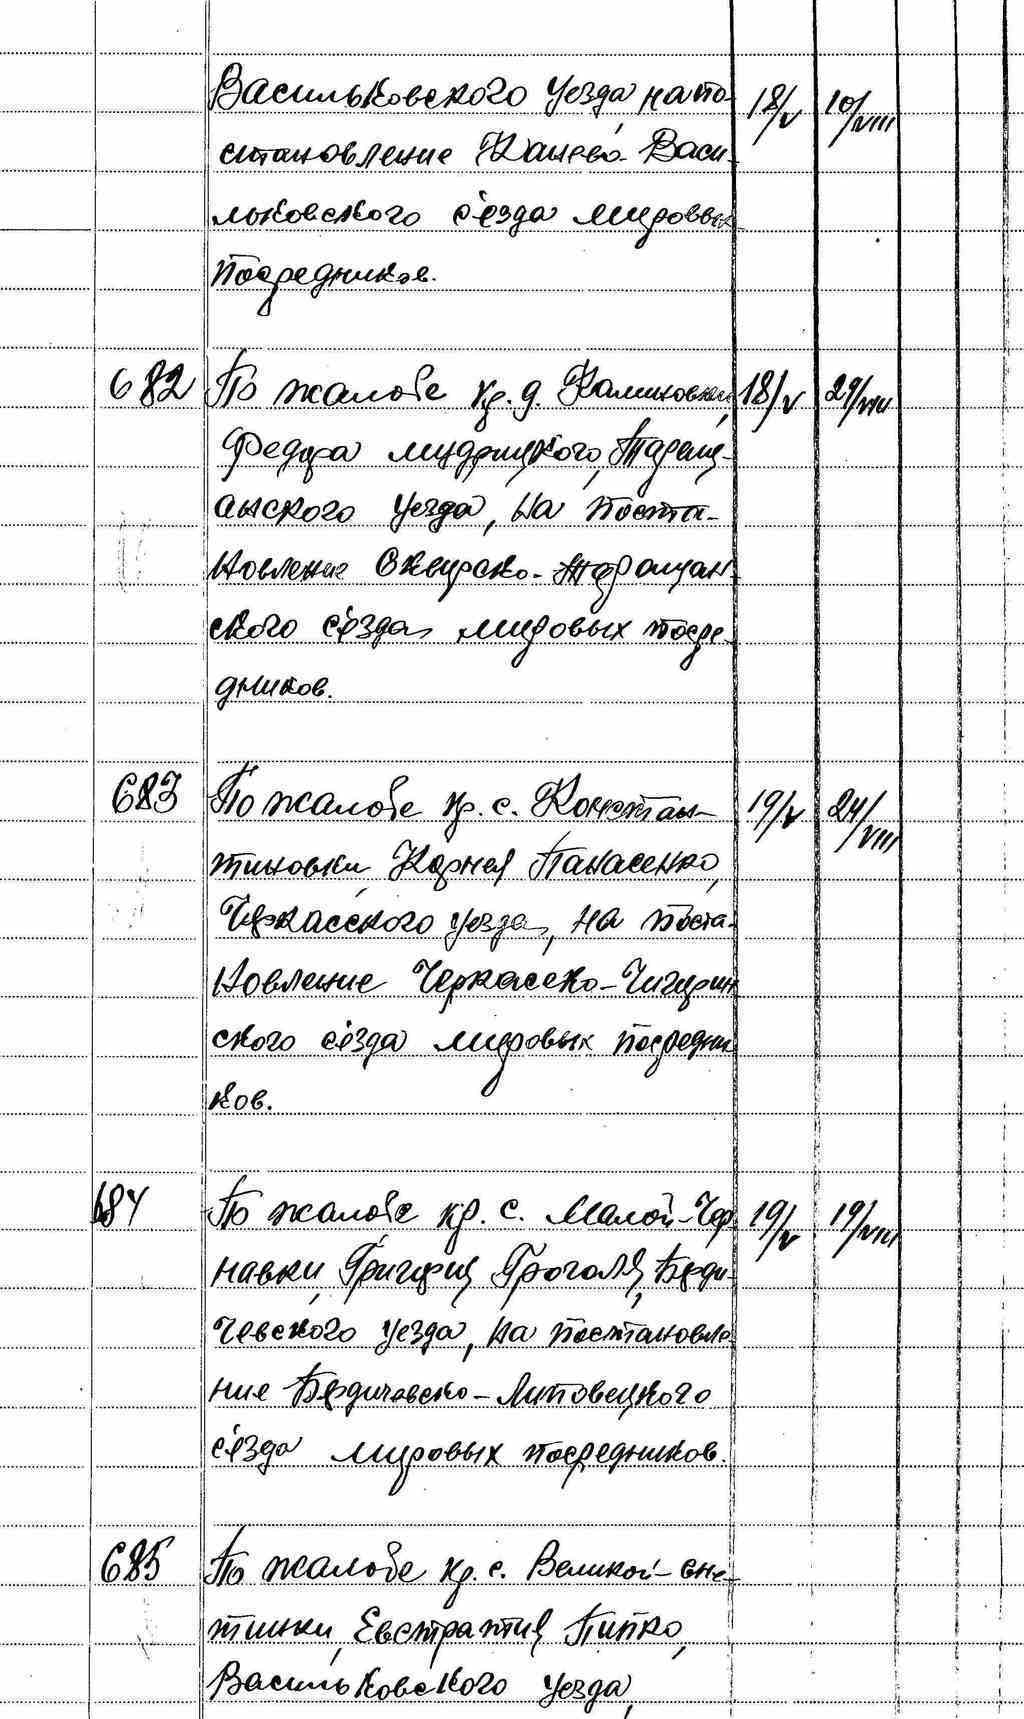 Васильковского уезда, на по- 18/V 10/VIII
становление Канево-Васи-
льковского с'езда мировых
посредников.
682 По жалобе кр. д. Калиновки, 18/V 29/VIII
Федора Мидрицкого, Таращ-
анского уезда, на поста-
новление Сквирско-Таращан-
ского с'езда мировых посре-
дников.
683 По жалобе кр. с. Констан- 19/V 24/VIII
тиновки, Корнея Панасенко,
Черкасского уезда, на поста-
новление Черкасско-Чигирин
ского с'езда мировых посредни
ков.
684 По жалобе кр. с. Малой-Чер- 19/V 19/VIII
навки, Григория Гроголя, Берди-
чевского уезда, на постановле-
ние Бердичевско-Липовецкого
с'езда мировых посредников.
685 По жалобе кр. с. Великой-Сне-
тинки, Евстратия Пипко,
Васильковского уезда,